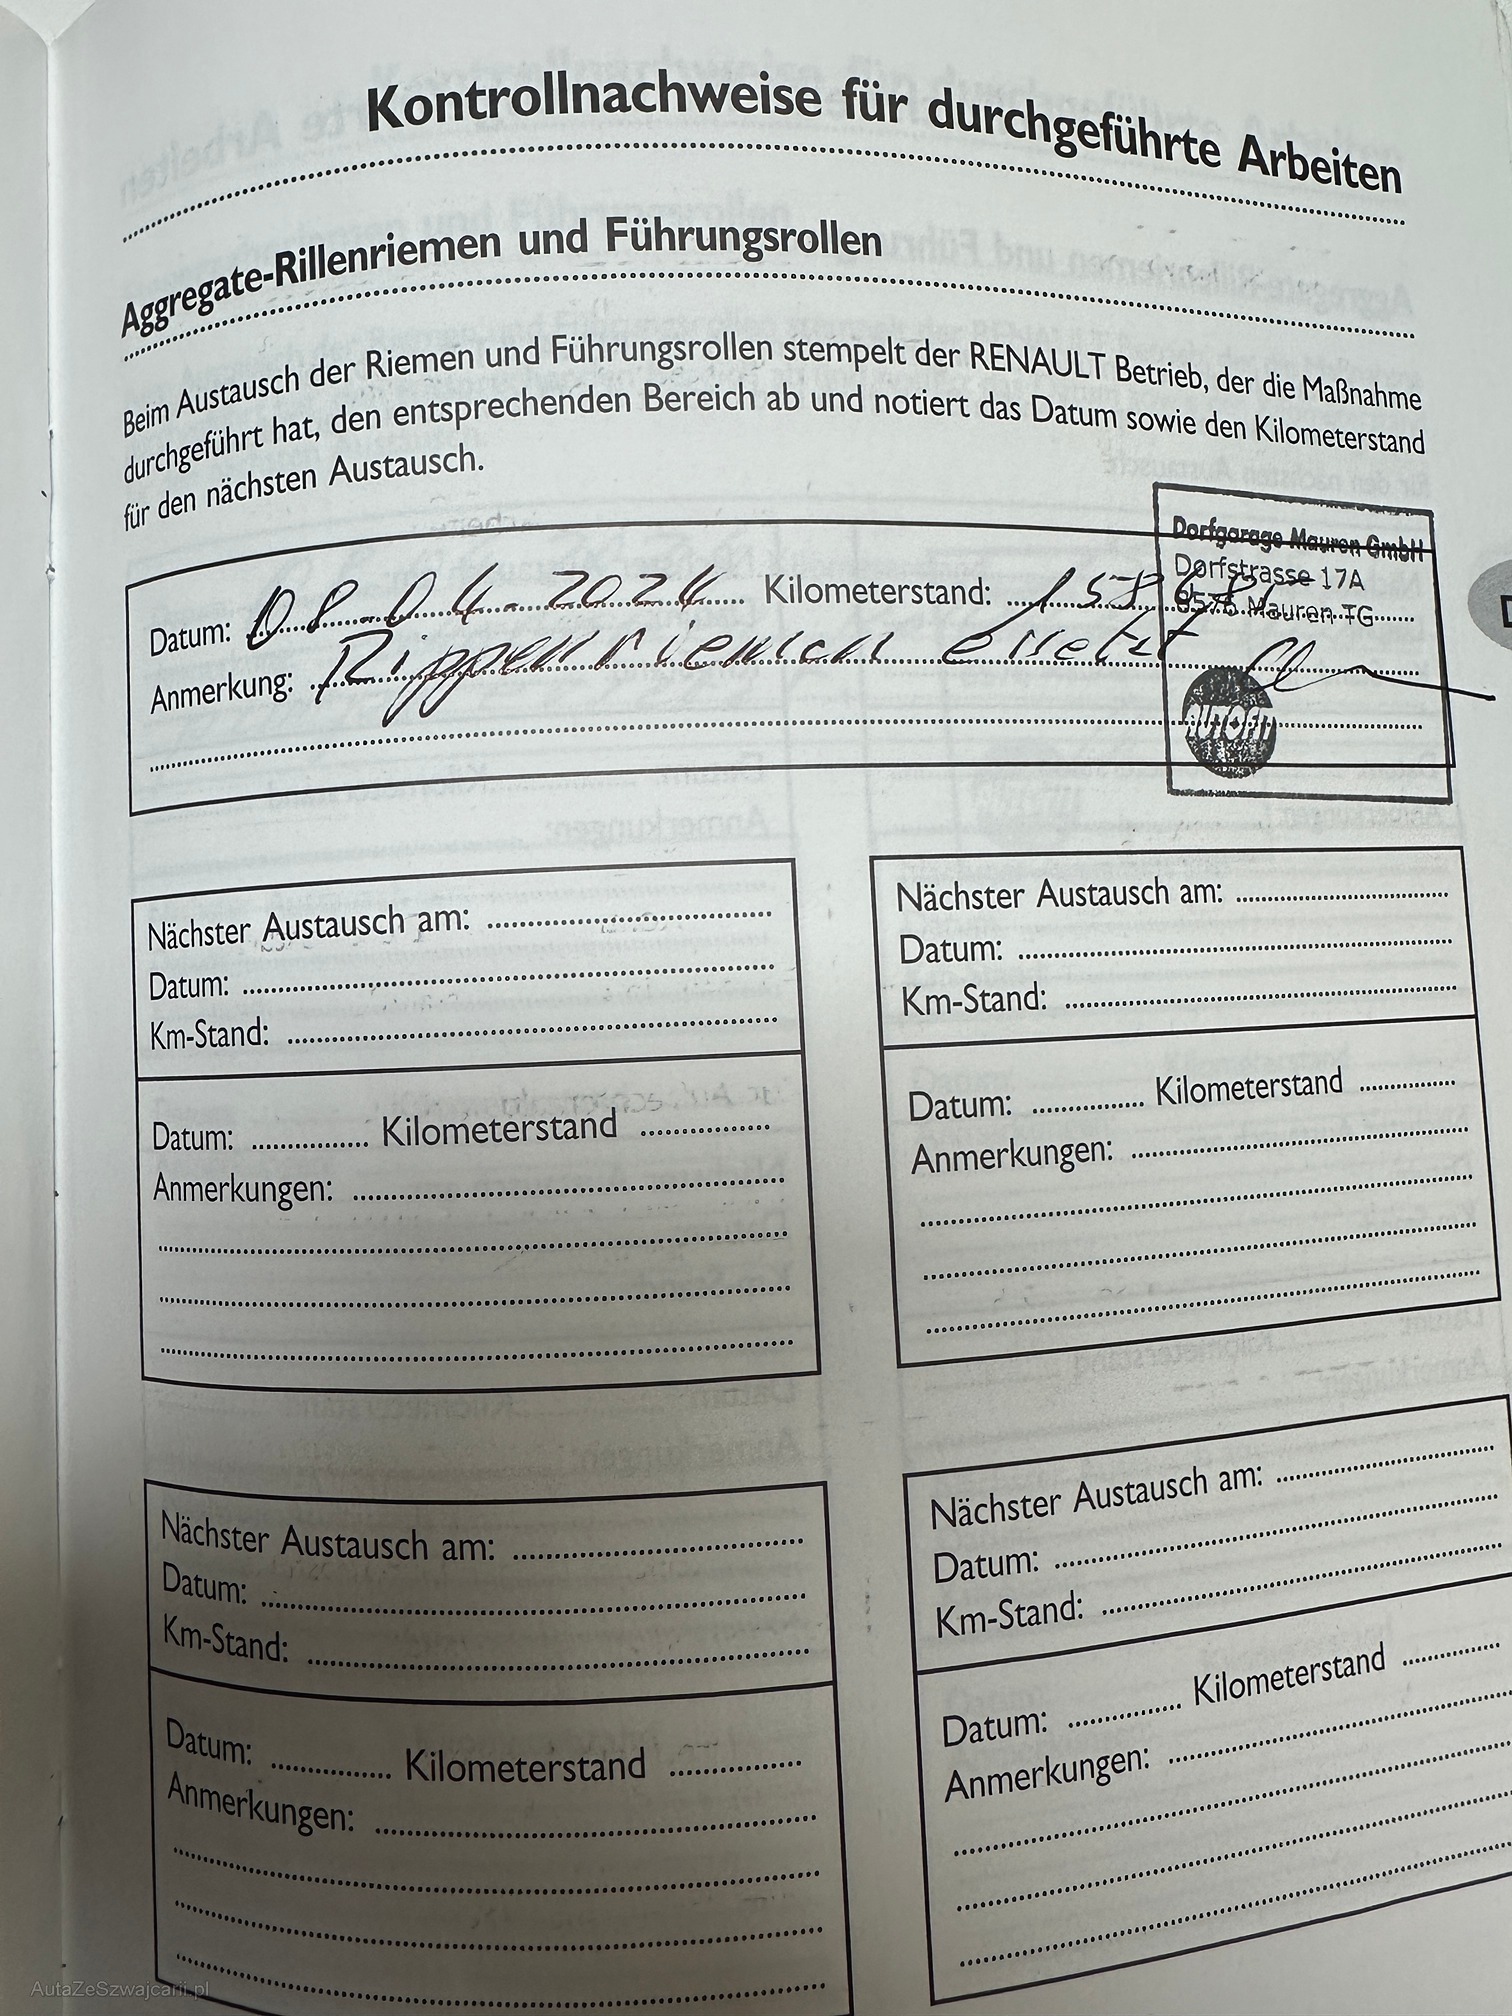 Kontrollnachweise für durchgeführte Arbeiten
Aggregate-Rillenriemen und Führungsrollen
Beim Austausch der Riemen und Führungsrollen stempelt der RENAULT Betrieb, der die Maßnahme
durchgeführt hat, den entsprechenden Bereich ab und notiert das Datum sowie den Kilometerstand
für den nächsten Austausch.
Dorfgarage Mauren GmbH
Dorfstrasse 17A
8576 Mauren TG
AUTOFIT
Datum: 08.04.2024 Kilometerstand:
Anmerkung: Rippenriemen ersetzt
Nächster Austausch am:
Datum:
Km-Stand:
Datum: Kilometerstand
Anmerkungen:
Nächster Austausch am:
Datum:
Km-Stand:
Datum: Kilometerstand
Anmerkungen:
Nächster Austausch am:
Datum:
Km-Stand:
Datum: Kilometerstand
Anmerkungen:
Nächster Austausch am:
Datum:
Km-Stand:
Datum: Kilometerstand
Anmerkungen:
AutaZeSzwajcarii.pl